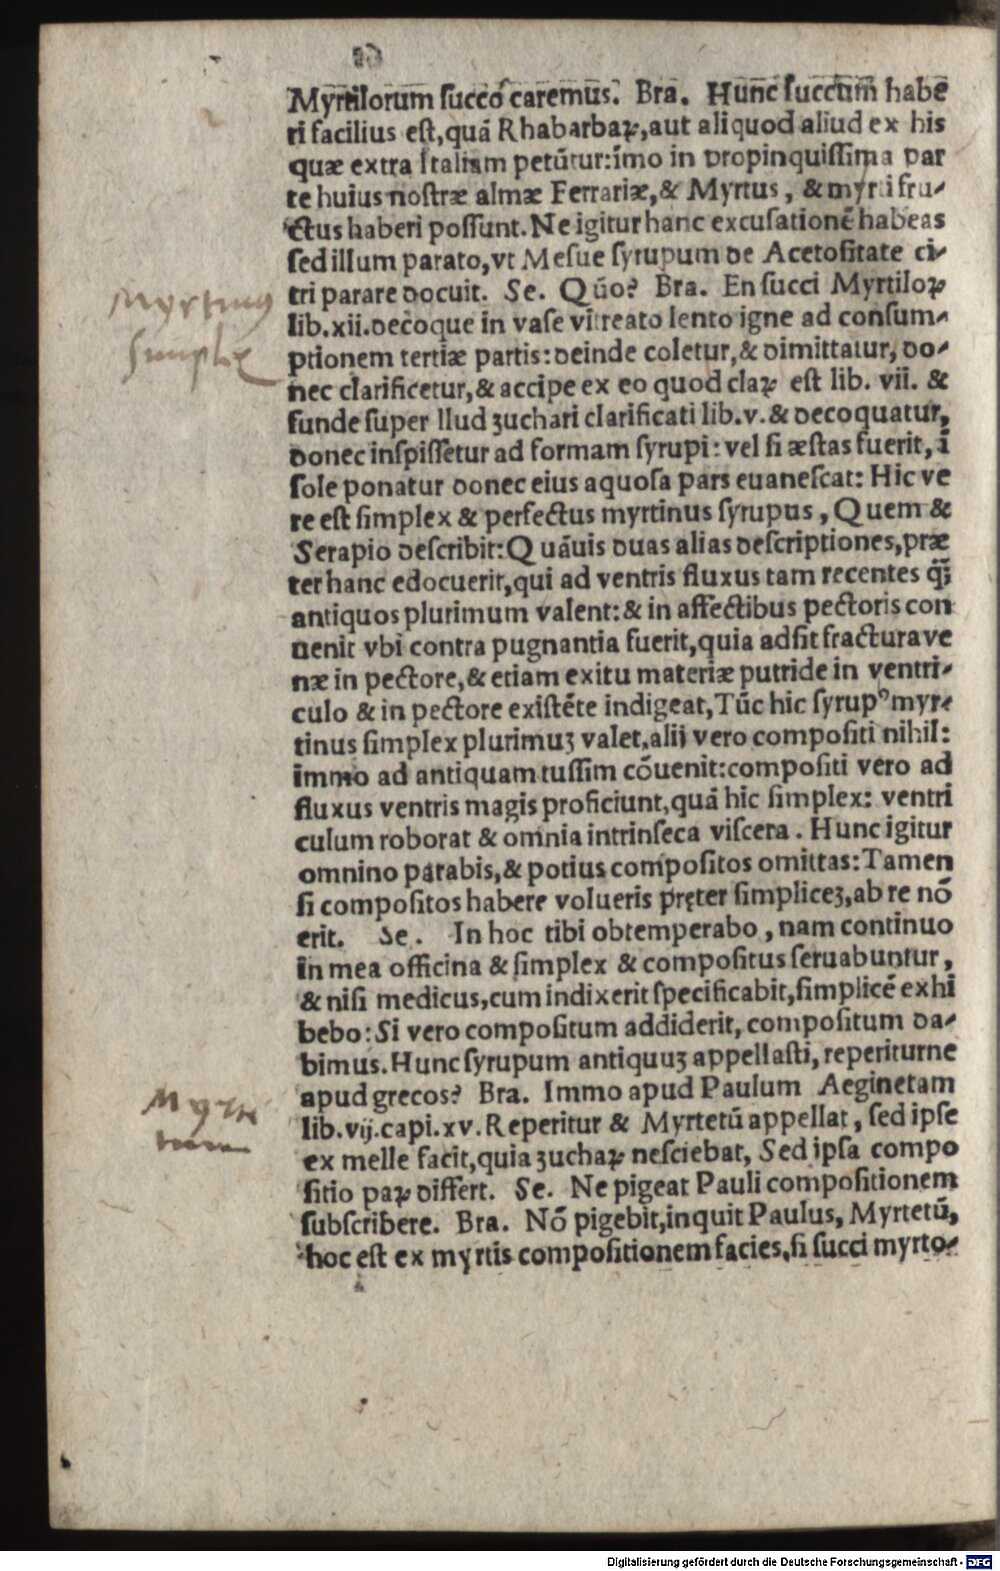 Myrtilorum ſucco caremus. Bra. Hunc ſuccum habe
ri facilius eſt,quā Rhabarbaꝝ,aut aliquod aliud ex his
quæ extra Italiam petūtur:imo in propinquiſſima par
te huius noſtræ almæ Ferrariæ,& Myrtus, & myrti fru-
ctus haberi poſſunt. Ne igitur hanc excuſationē habeas
ſed illum parato,vt Meſue ſyrupum de Acetoſitate ci-
tri parare docuit. Se. Qūo? Bra. En ſucci Myrtiloꝝ
Myrtinus
lib.xii.decoque in vaſe vitreato lento igne ad conſum-
Simplex
ptionem tertiæ partis:deinde coletur,& dimittatur, do-
nec clarificetur,& accipe ex eo quod claꝝ eſt lib. vii. &
funde ſuper llud ʒuchari clarificati lib.v.& decoquatur,
donec inſpiſſetur ad formam ſyrupi: vel ſi æſtas fuerit, ī
ſole ponatur donec eius aquoſa pars euaneſcat: Hic ve
re eſt ſimplex & perfectus myrtinus ſyrupus, Quem &
Serapio deſcribit:Quāuis duas alias deſcriptiones,præ
ter hanc edocuerit,qui ad ventris fluxus tam recentes q̃ʒ
antiquos plurimum valent:& in affectibus pectoris con
uenit vbi contra pugnantia fuerit,quia adſit fractura ve
næ in pectore,& etiam exitu materiæ putride in ventri-
culo & in pectore exiſtēte indigeat,Tūc hic ſyrupꝰ myr-
tinus ſimplex plurimuʒ valet,alij vero compoſiti nihil:
immo ad antiquam tuſſim cōuenit:compoſiti vero ad
fluxus ventris magis proficiunt,quā hic ſimplex: ventri
culum roborat & omnia intrinſeca viſcera. Hunc igitur
omnino parabis,& potius compoſitos omittas: Tamen
ſi compoſitos habere volueris pręter ſimpliceʒ,ab re nō
erit. Se. In hoc tibi obtemperabo, nam continuo
in mea officina & ſimplex & compoſitus ſeruabuntur,
& niſi medicus,cum indixerit ſpecificabit,ſimplicē exhi
bebo: Si vero compoſitum addiderit, compoſitum da-
bimus. Hunc ſyrupum antiquuʒ appellaſti, reperiturne
apud grecos? Bra. Immo apud Paulum Aeginetam
Myrte
lib.vij.capi.xv.Reperitur & Myrtetū appellat, ſed ipſe
tum
ex melle facit,quia ʒuchaꝝ neſciebat, Sed ipſa compo
ſitio paꝝ differt. Se. Ne pigeat Pauli compoſitionem
ſubſcribere. Bra. Nō pigebit,inquit Paulus, Myrtetū,
hoc eſt ex myrtis compoſitionem facies,ſi ſucci myrto-
Digitalisierung gefördert durch die Deutsche Forschungsgemeinschaft - DFG